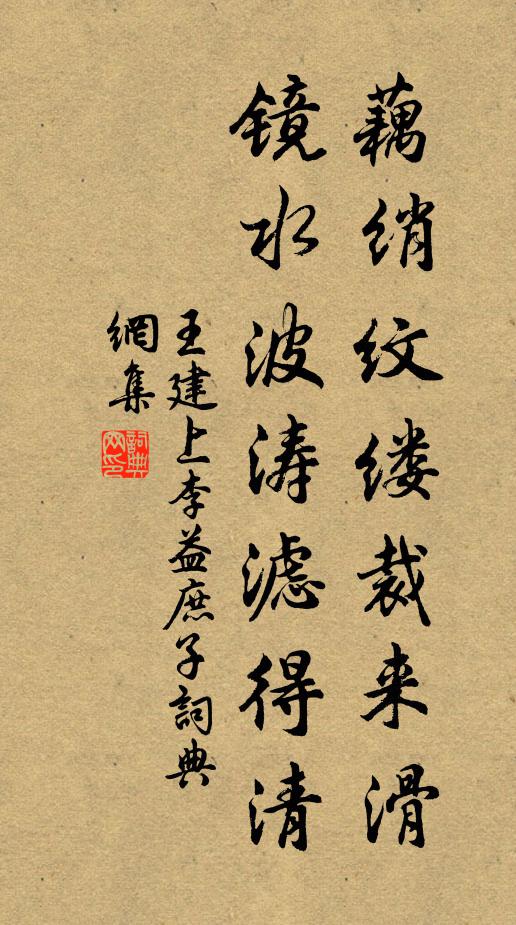 藕绡纹缕裁来滑
镜水波涛滤得清
王建上李益庶子詞典
網集
詞典
网印